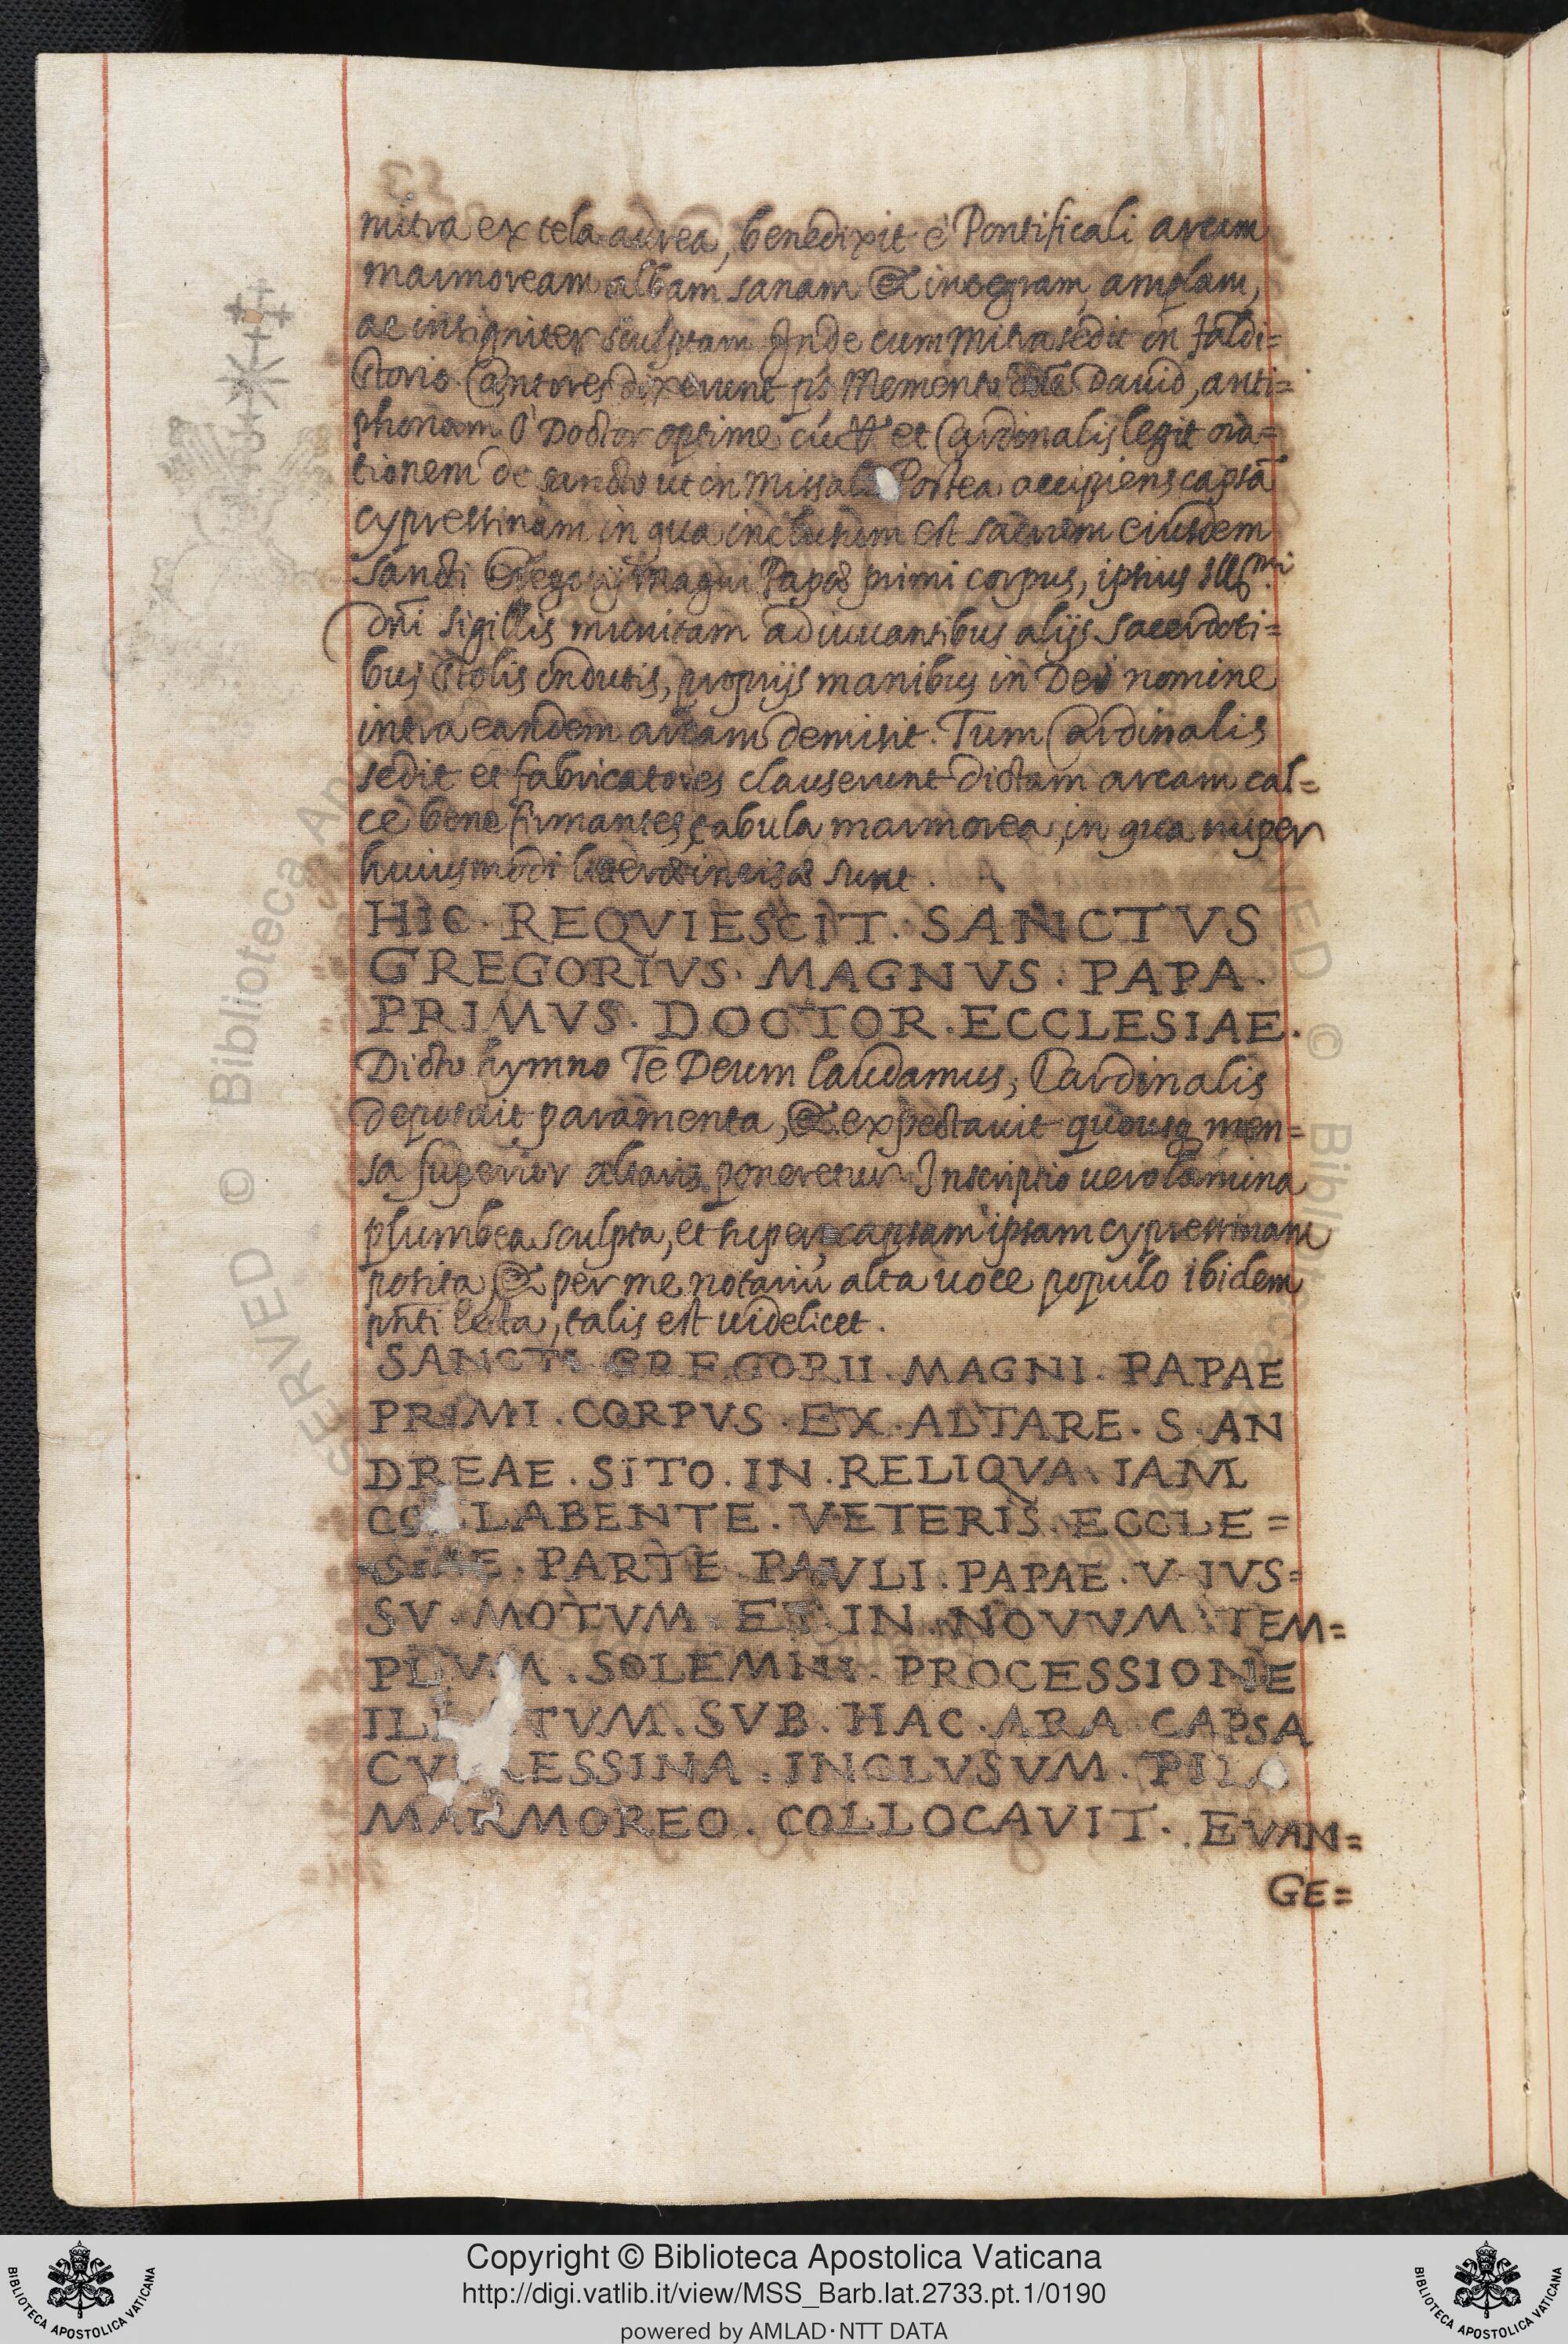 mitra ex tela aurea, benedixit è Pontificali arcam
marmoream albam sanam & integram, amplam,
ac insigniter sculptam Inde cum mitra sedit in faldi=
storio. Cantores dixerunt ps Memento dñe Dauid, anti=
phonam O Doctor optime cú et Cardinalis legit ora=
tionem de sancto ut in Missali Postea accipiens capsã
cypressinam in qua inclusum est sacrum eiusdem
Sancti Gregorij Magni Papæ primi corpus, ipsius Ill.mi
Dñi sigillis munitam adiuuantibus alijs sacerdoti=
bus stolis indutis, proprijs manibus in Dei nomine
intra eandem arcam demisit. Tum Cardinalis
sedit et fabricatores clauserunt dictam arcam cal=
ce bene firmantes, tabula marmorea, in qua nuper
huiusmodi literæ incisæ sunt.
HIC. REQVIESCIT. SANCTVS
GREGORIVS. MAGNVS. PAPA.
PRIMVS. DOCTOR. ECCLESIAE.
Dicto hymno Te Deum laudamus, Cardinalis
deposuit paramenta, & expectauit quousq men=
sa superior altaris poneretur. Inscriptio uero lamina
plumbea sculpta, et super capsam ipsam cypressinam
posita, & per me notariũ alta uoce populo ibidem
pñti lecta, talis est uidelicet.
SANCTI GREGORII. MAGNI. PAPAE
PRIMI. CORPVS. EX. ALTARE. S. AN
DREAE. SITO. IN. RELIQVA. IAM
COLLABENTE. VETERIS. ECCLE=
SIAE. PARTE PAVLI. PAPAE. V. IVS=
SV. MOTVM. ET. IN. NOVVM. TEM=
PLVM. SOLEMNI. PROCESSIONE
ILLATVM. SVB. HAC. ARA CAPSA
CVPRESSINA. INCLVSVM. PILO
MARMOREO. COLLOCAVIT. EVAN=
GE=
Copyright © Biblioteca Apostolica Vaticana
http://digi.vatlib.it/view/MSS_Barb.lat.2733.pt.1/0190
powered by AMLAD·NTT DATA
BIBLIOTECA APOSTOLICA VATICANA
BIBLIOTECA APOSTOLICA VATICANA